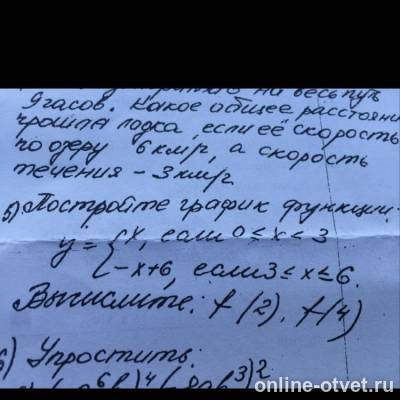 на весь путь
9 часов. Какое общее расстояни
прошла лодка, если её скорость
по озеру 6 км/ч, а скорость
течения - 3 км/ч
5) Постройте график функции
y = { x, если 0 ≤ x < 3
-x+6, если 3 ≤ x ≤ 6.
Вычислите: f(2), f(4)
6) Упростить:
online-otvet.ru